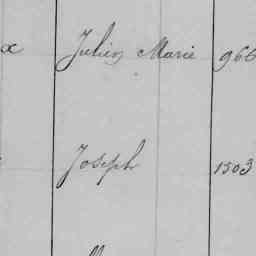 x Julien Marie 966
Joseph 1503